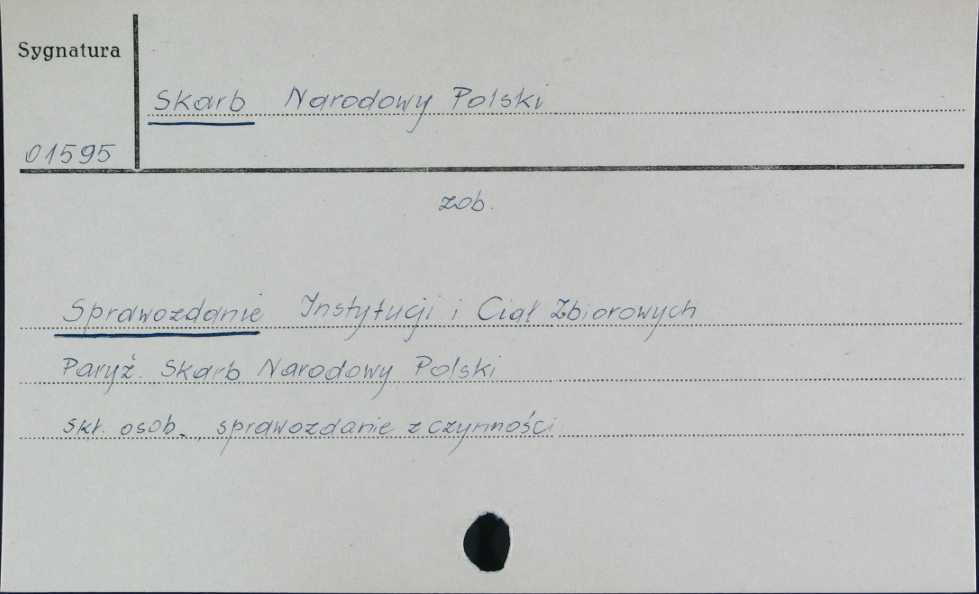 Sygnatura
Skarb Narodowy Polski
01595
zob.
Sprawozdanie Instytucji i Ciał Zbiorowych
Paryż. Skarb Narodowy Polski
skł. osob., sprawozdanie z czynności